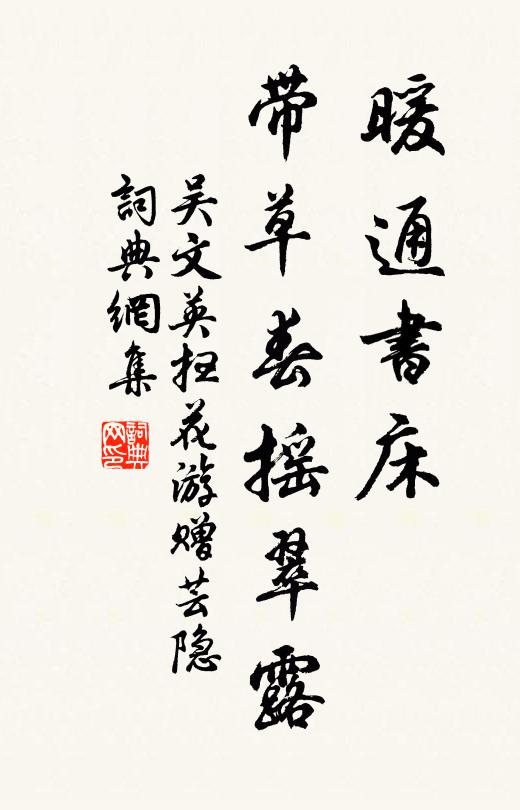 暖通書床
带草春摇翠露
吴文英扫花游赠芸隐
詞典網集
詞典网印